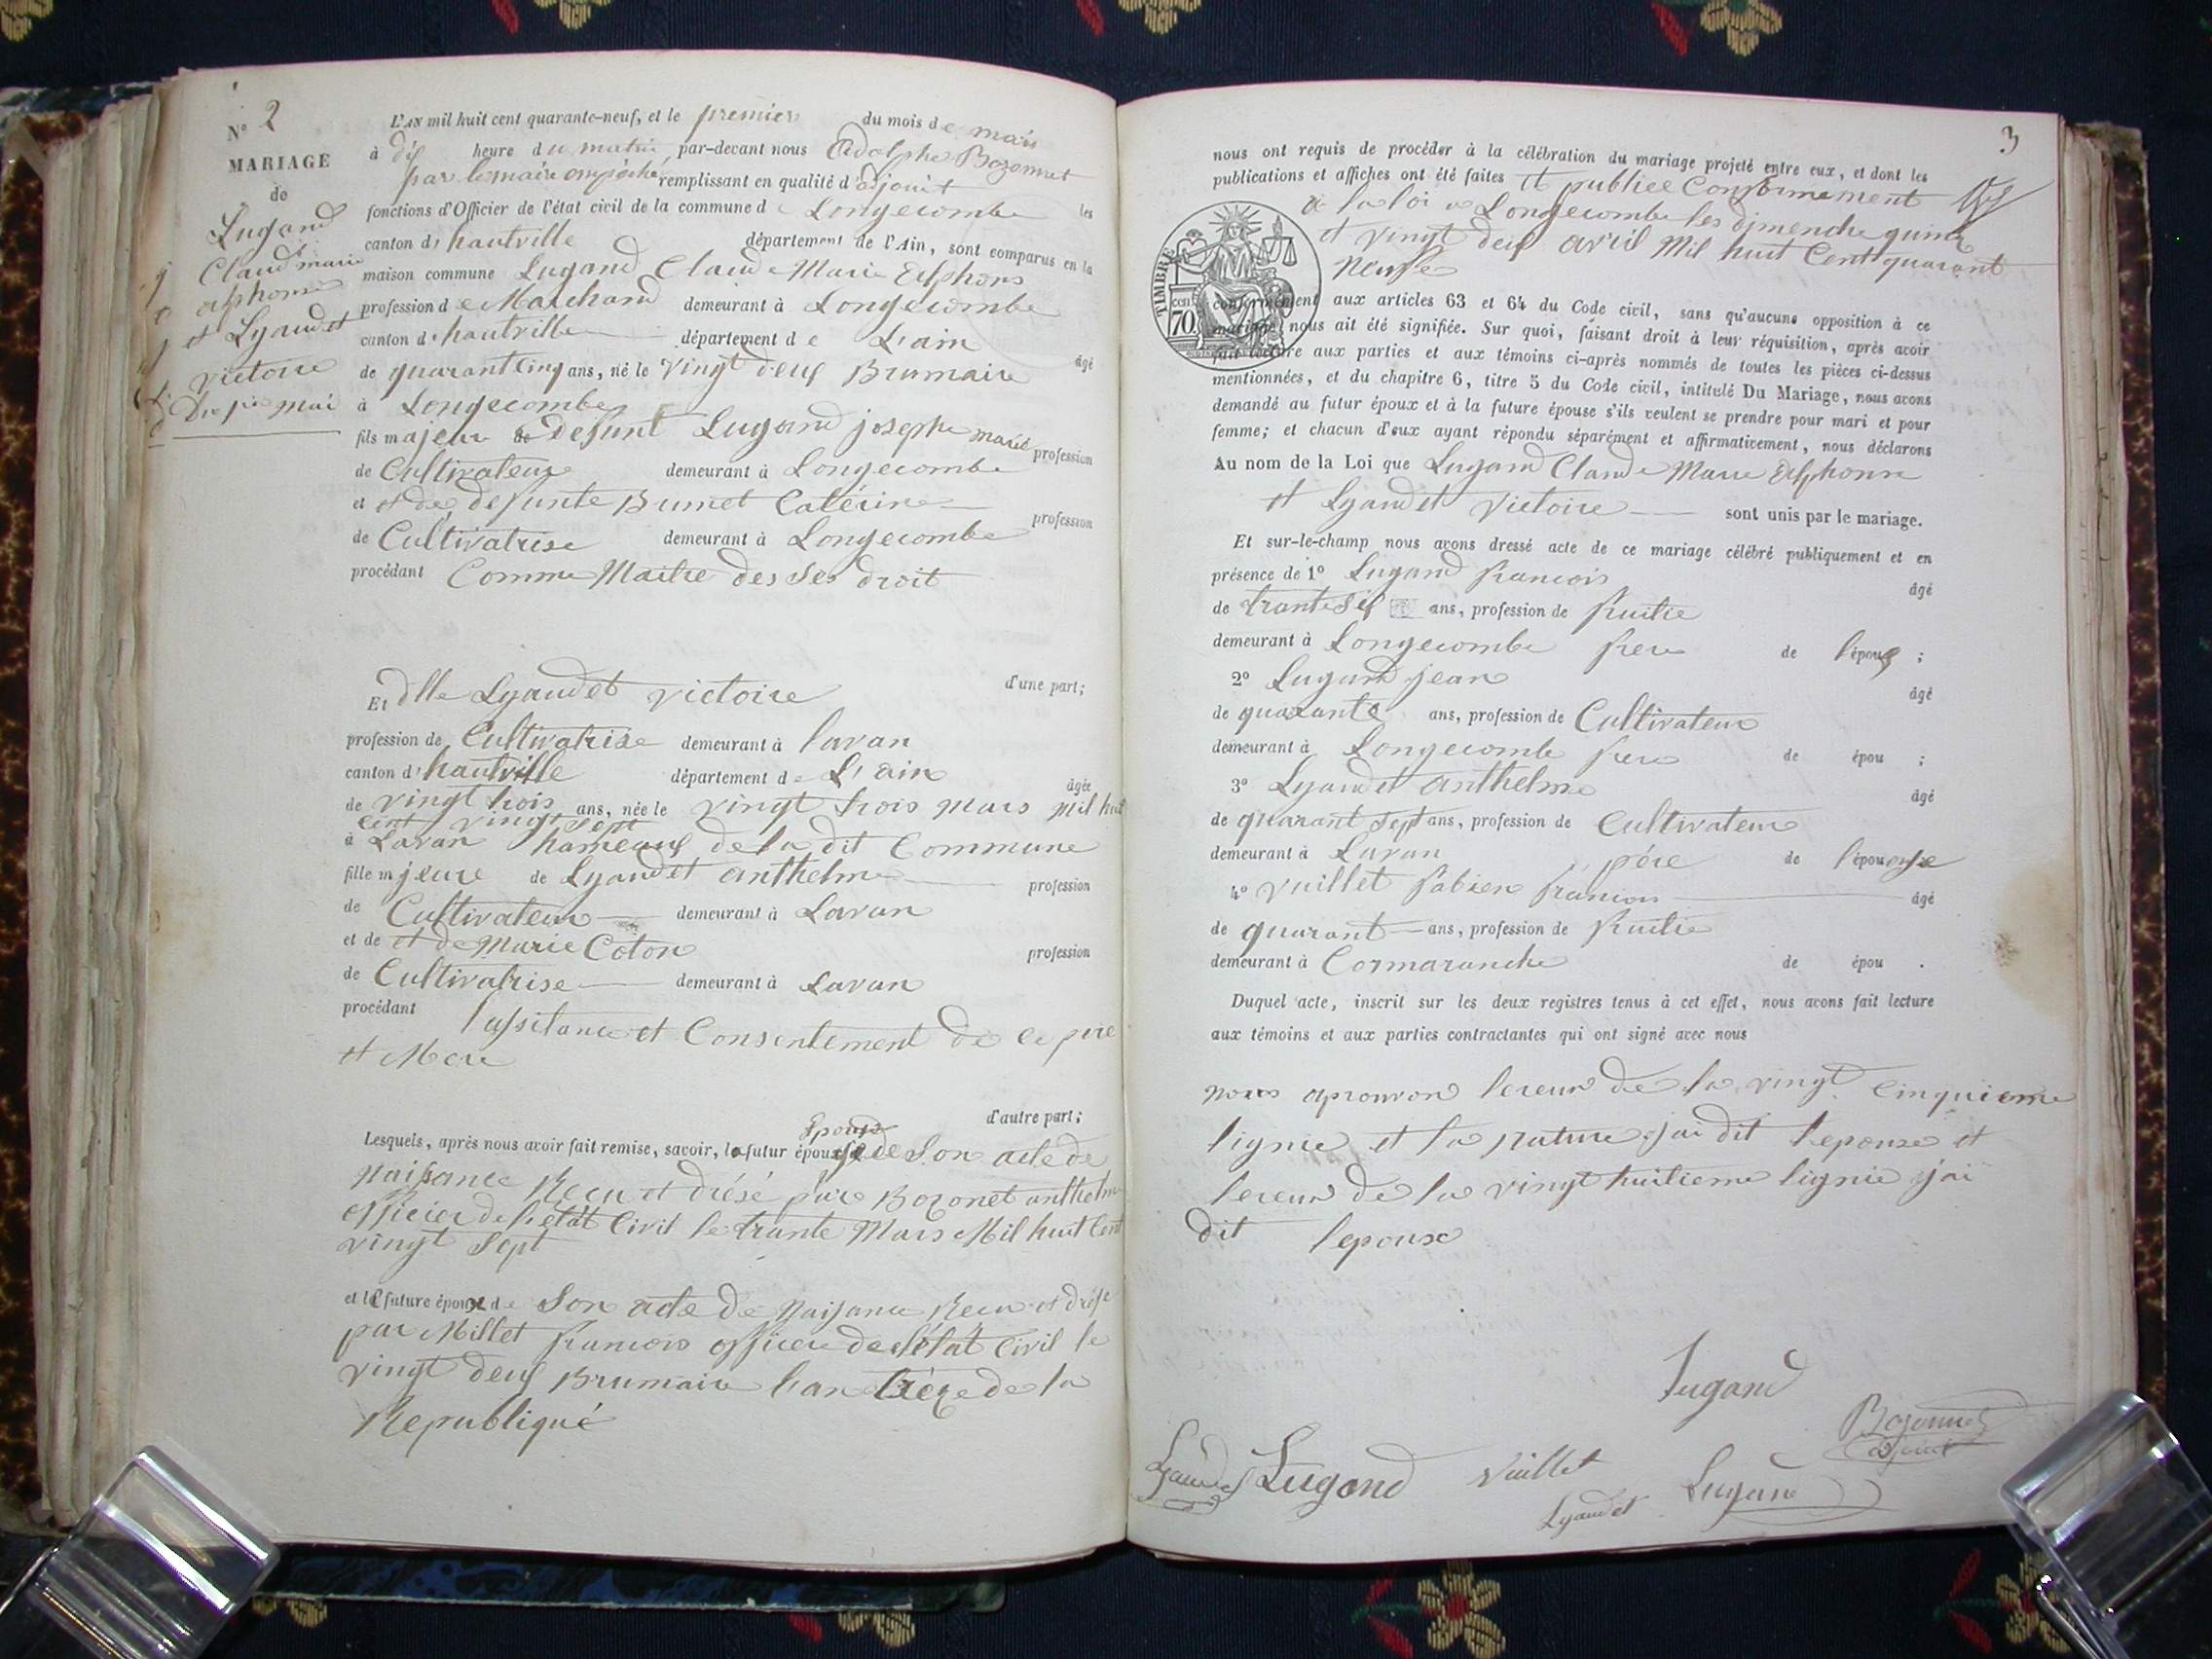 N° 2
MARIAGE
de
Lugand
Claud marie
alphonse
et Lyaudet
Victoire
Du 1er mai
L'AN mil huit cent quarante-neuf, et le premier du mois de mais
à dix heure du matin par-devant nous Adolphe Bozonnet
par le maire empéché remplissant en qualité d'adjoint les
fonctions d'Officier de l'état civil de la commune de Longecombe
canton d' hautville département de l'Ain, sont comparus en la
maison commune Lugand Claude Marie Alphons
profession de Marchand demeurant à Longecombe
canton d' hautville département de L'ain âgé
de quarant cinq ans, né le vingt deux Brumaire
à Longecombe
fils majeur de Defunt Lugand joseph marie profession
de Cultivateur demeurant à Longecombe
et et de defunte Burnet Catérine profession
de Cultivatrise demeurant à Longecombe
procédant Comme Maitre des Ses droit
d'une part;
Et dlle Lyaudet victoire
profession de Cultivatrise demeurant à lavan
canton d' hautville département de L'ain âgée
de vingt trois ans, née le vingt trois mars mil huit
cent vingt sept
à Lavan hameaux de la dit Commune
fille majeure de Lyaudet anthelme profession
de Cultivateur demeurant à Lavan
et de et de Marie Coton profession
de Cultivatrise demeurant à Lavan
procédant l'assitance et Consentement de ce pere
et Mere
d'autre part;
Epouse
Lesquels, après nous avoir fait remise, savoir, la futur épouse de Son acte de
naissance Recu et drésé pare Bozonet anthelme
officier de l'etat Civil le trante Mars Mil huit Cent
vingt Sept
et le future époux de Son acte de Naisance Recu et drése
par Millet francois officier de l'état Civil le
vingt deux Brumaire l'an treize de la
Republiqué
3
nous ont requis de procéder à la célébration du mariage projeté entre eux, et dont les
publications et affiches ont été faites et publiee Conformement
a la loi a Longecombe les dimenche quinze
et vingt deux avril Mil huit Cent quarant
neuf
TIMBRE
70 cent
conformément aux articles 63 et 64 du Code civil, sans qu'aucune opposition à ce
mariage nous ait été signifiée. Sur quoi, faisant droit à leur réquisition, après avoir
fait lecture aux parties et aux témoins ci-après nommés de toutes les pièces ci-dessus
mentionnées, et du chapitre 6, titre 5 du Code civil, intitulé Du Mariage, nous avons
demandé au futur époux et à la future épouse s'ils veulent se prendre pour mari et pour
femme; et chacun d'eux ayant répondu séparément et affirmativement, nous déclarons
Au nom de la Loi que Lugand Claude Marie Alphonse
et Lyaudet Victoire sont unis par le mariage.
Et sur-le-champ nous avons dressé acte de ce mariage célébré publiquement et en
présence de 1° Lugand francois âgé
de trante six ans, profession de fruitie
demeurant à Longecombe frere de l'époux ;
2° Lugand jean âgé
de quarante ans, profession de Cultivateur
demeurant à Longecombe frere de épou ;
3° Lyaudet anthelme âgé
de quarant sept ans, profession de Cultivateur
demeurant à Lavan père de l'épouse
4° Vuillet fabien francois âgé
de quarant ans, profession de fruitie
demeurant à Cormaranche de épou .
Duquel acte, inscrit sur les deux registres tenus à cet effet, nous avons fait lecture
aux témoins et aux parties contractantes qui ont signé avec nous
nous aprouvon lereur de la vingt cinquieme
lignie et la rature jai dit lepouse et
lereur de la vingt huitieme lignie jai
dit lepoux
Lugand
Bozonnet
adjoint
Lyaudet Lugand Vuillet Lugand
Lyaudet